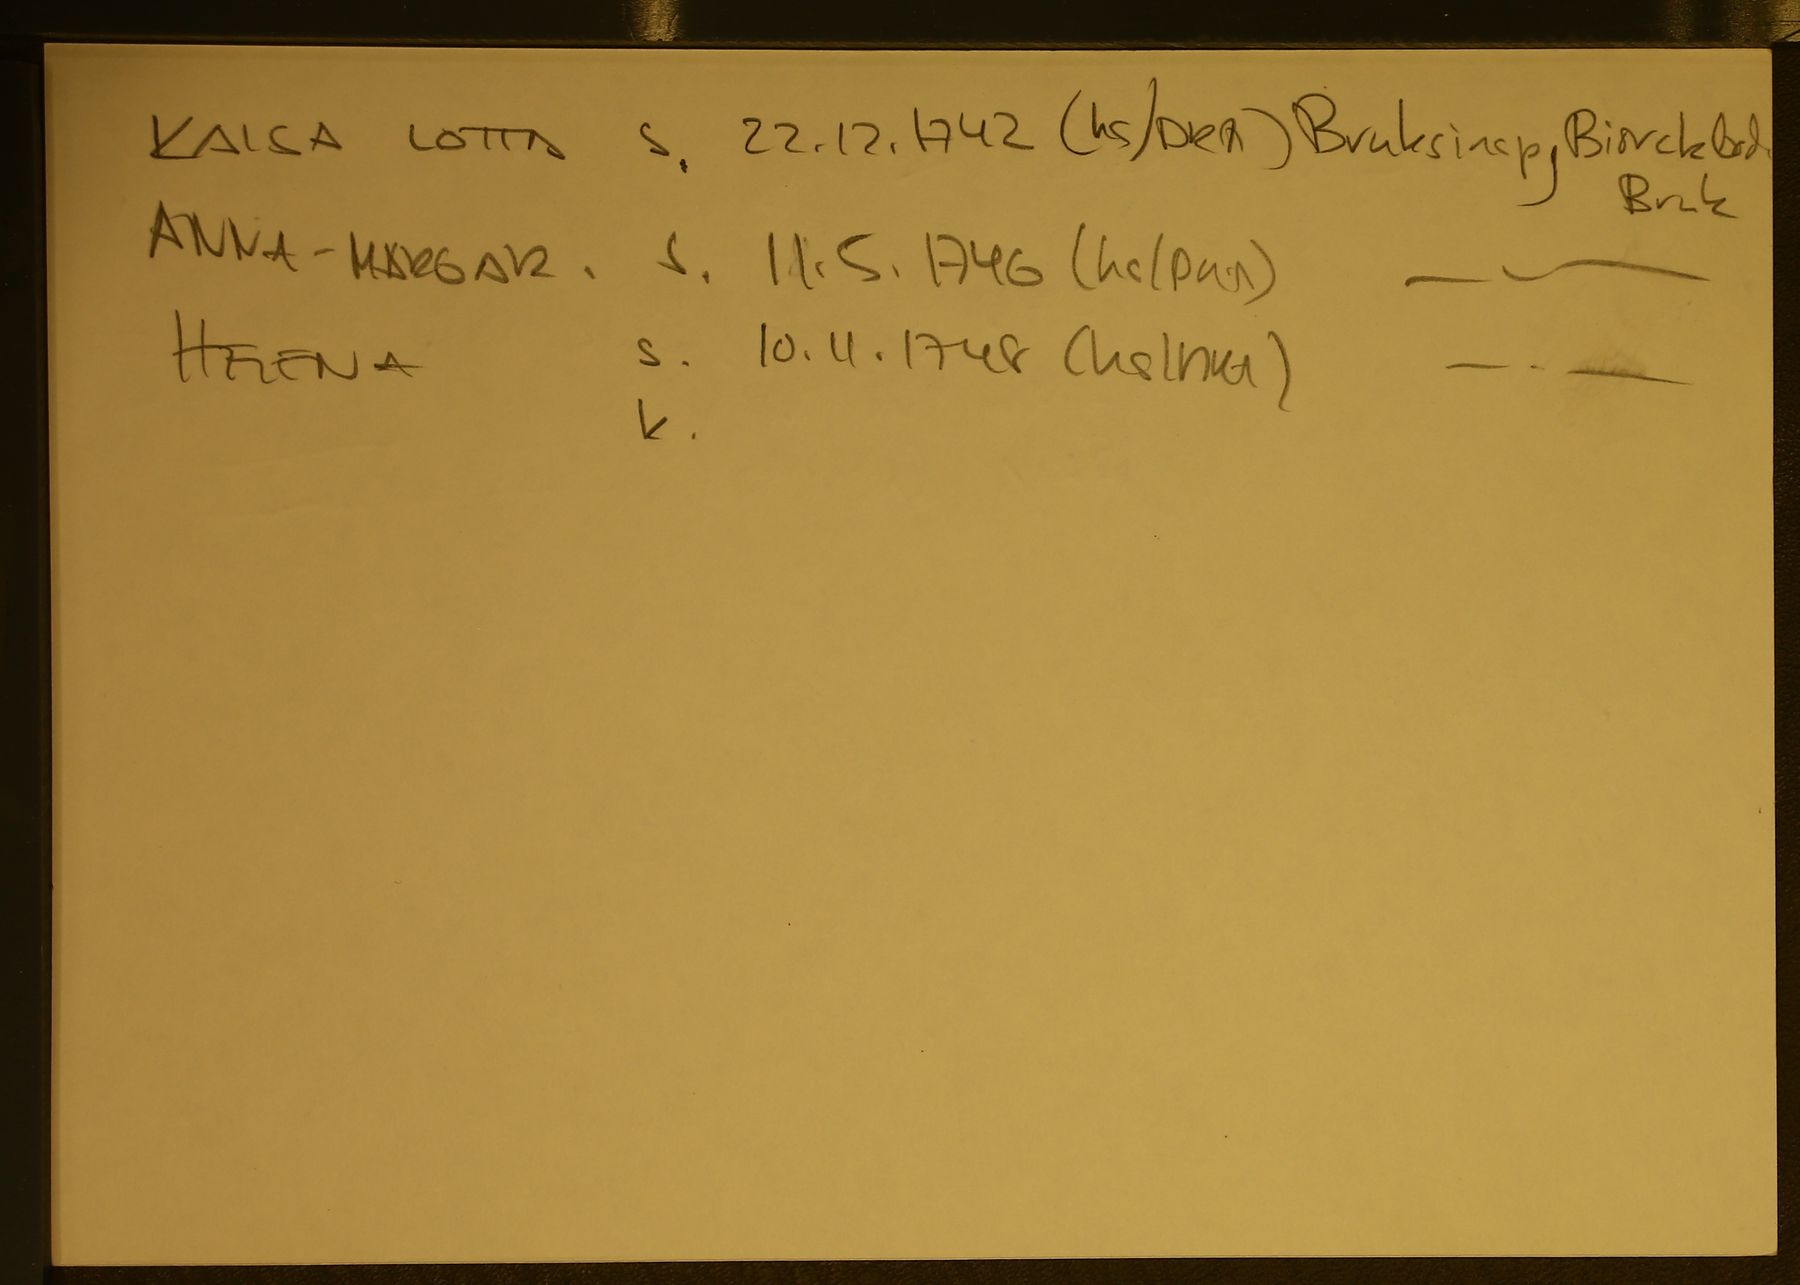 KAISA LOTTA s. 22.12.1742 (hs/DKA) Bruksinsp, Biörckbod.
Bruk
ANNA-MARGAR. s. 11.5.1746 (hs/DKA) — 〃 —
HELENA s. 10.11.1748 (hs/DKA) — 〃 —
k.